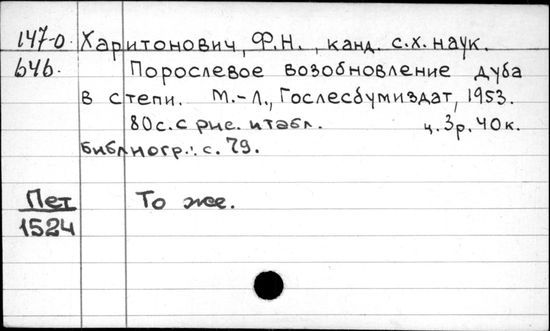 147-0 Харитонович, Ф.Н., канд. с.х. наук.
646. Порослевое возобновление дуба
в степи. М.-Л., Гослесбумиздат, 1953.
80с. с рис. и табл. ц. 3р. 40к.
библиогр.: с. 79.
Пет То же.
1524